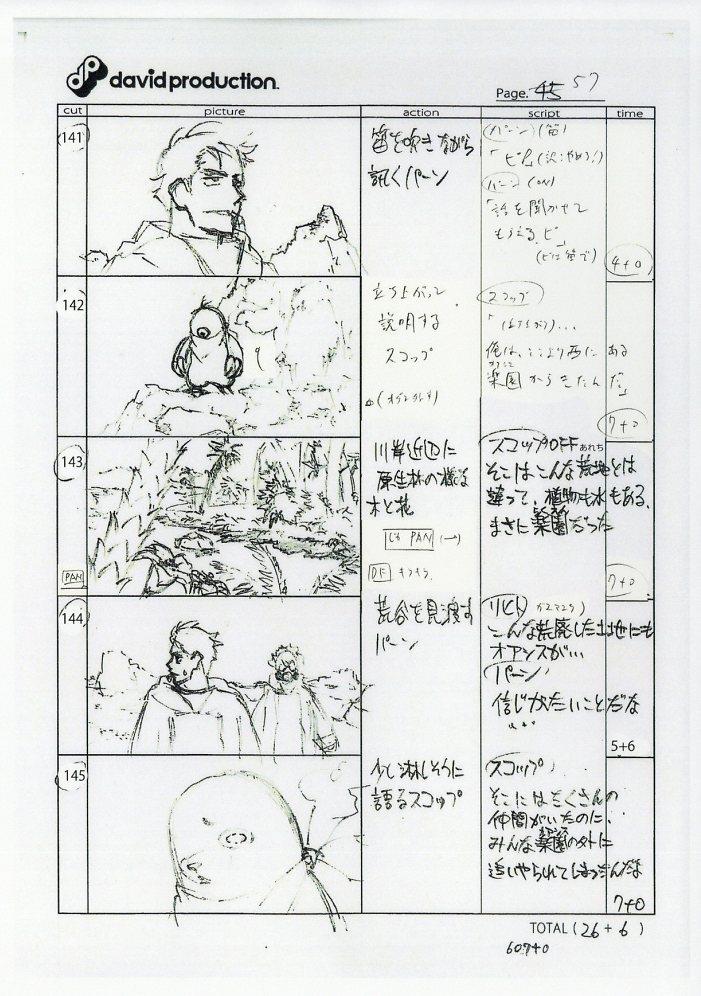 davidproduction.
Page. 45 57
cut
picture
action
script
time
141
笛を吹きながら
訊くパーン
パーン (笛)
パーン (ON)
「話を聞かせて
もらえる ピ」
(ピは笛で)
4+0
142
立ち上がって
説明する
スコップ
スコップ
俺は、ここより西に ある
楽園 からきたん だ」
7+0
143
PAN
川岸近辺に
原生林の様な
木と花
PAN (→)
DF キラキラ
スコップOFF
あれち
そこはこんな荒地とは
違って、植物も水もある、
まさに楽園だった
7+0
144
荒谷を見渡す
パーン
リヒト
こんな荒廃した土地にも
オアシスが…
パーン
信じがたいことだな
5+6
145
少し淋しそうに
語るスコップ
スコップ
そこにはたくさんの
仲間がいたのに、
みんな楽園の外に
追いやられてしまったんだよ
7+0
TOTAL ( 26 + 6 )
607+0